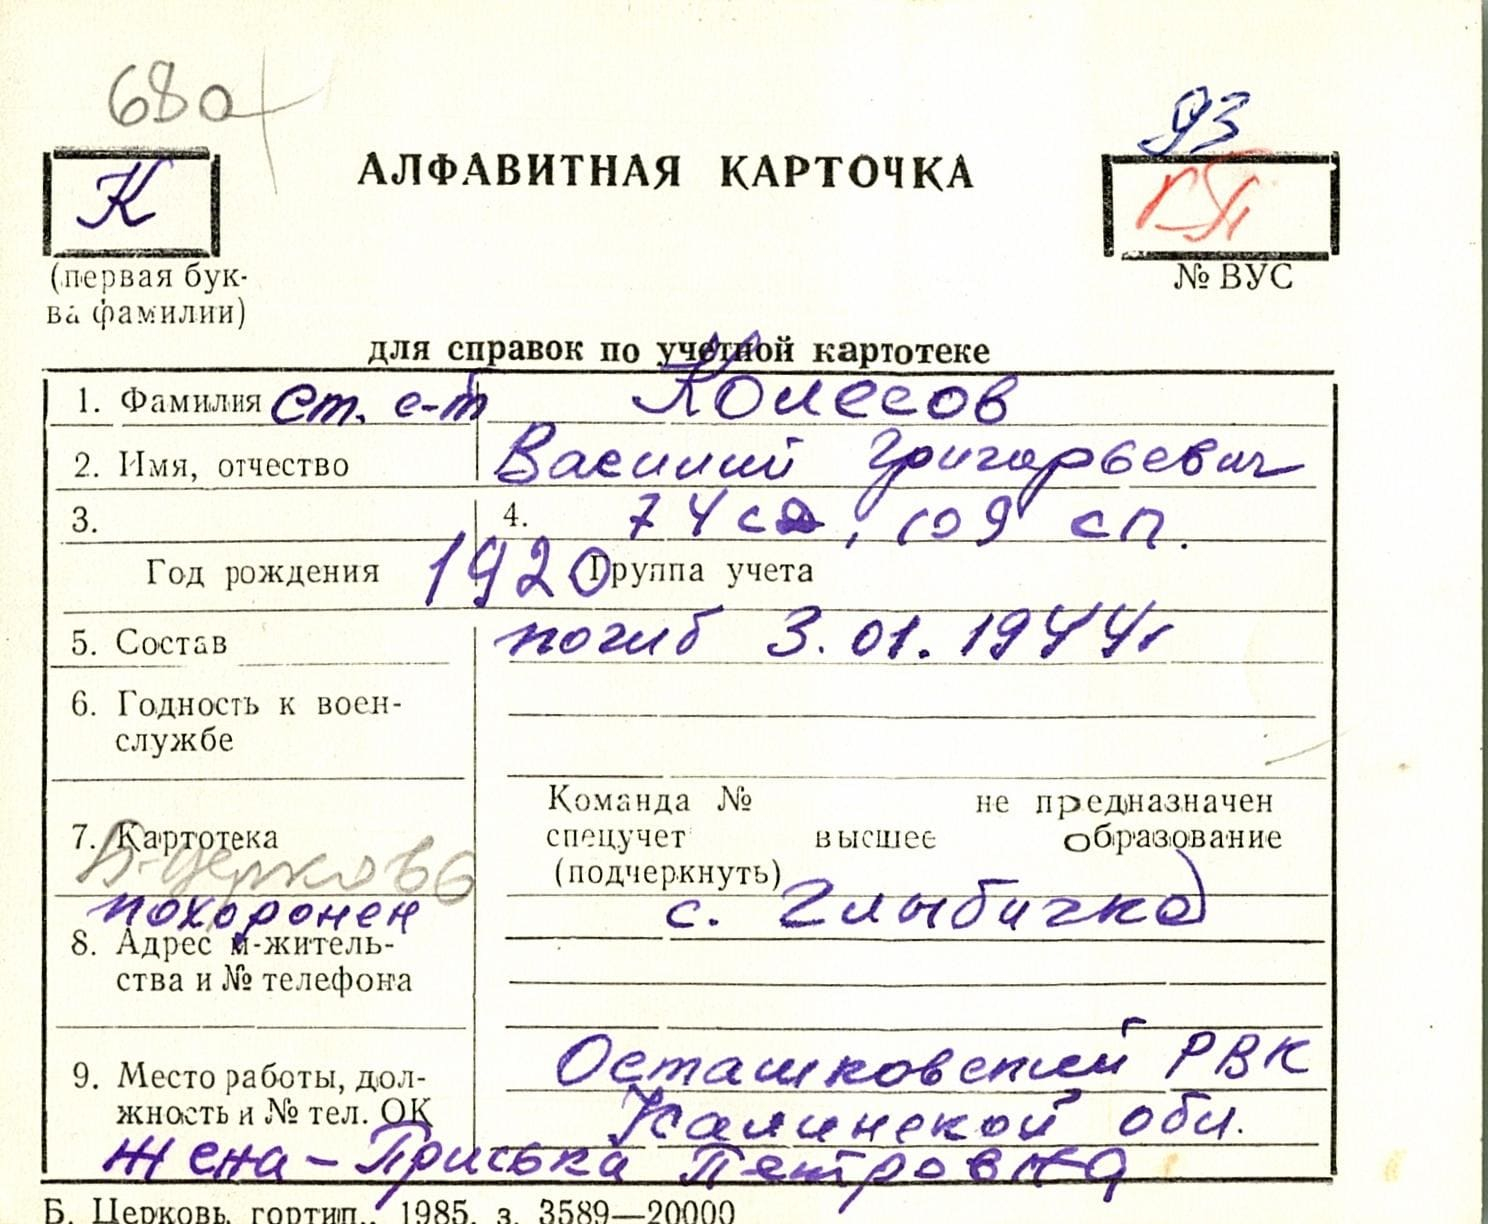 68а
93
К
АЛФАВИТНАЯ КАРТОЧКА
(первая бук-
ва фамилии)
№ ВУС
для справок по учетной картотеке
1. Фамилия ст. с-т Колесов
2. Имя, отчество Василий Григорьевич
3. 4. 74 сд, 109 сп.
Год рождения 1920 Группа учета
5. Состав погиб 3.01.1944г
6. Годность к воен-
службе
Команда № не предназначен
7. Картотека спецучет высшее образование
Б-Церковь (подчеркнуть)
похоронен с. Глыбичка
8. Адрес м-житель-
ства и № телефона
Осташковский РВК
9. Место работы, дол-
жность и № тел. ОК Калинской обл.
жена - Приська Петровна
Б. Церковь, гортип., 1985, з. 3589—20000